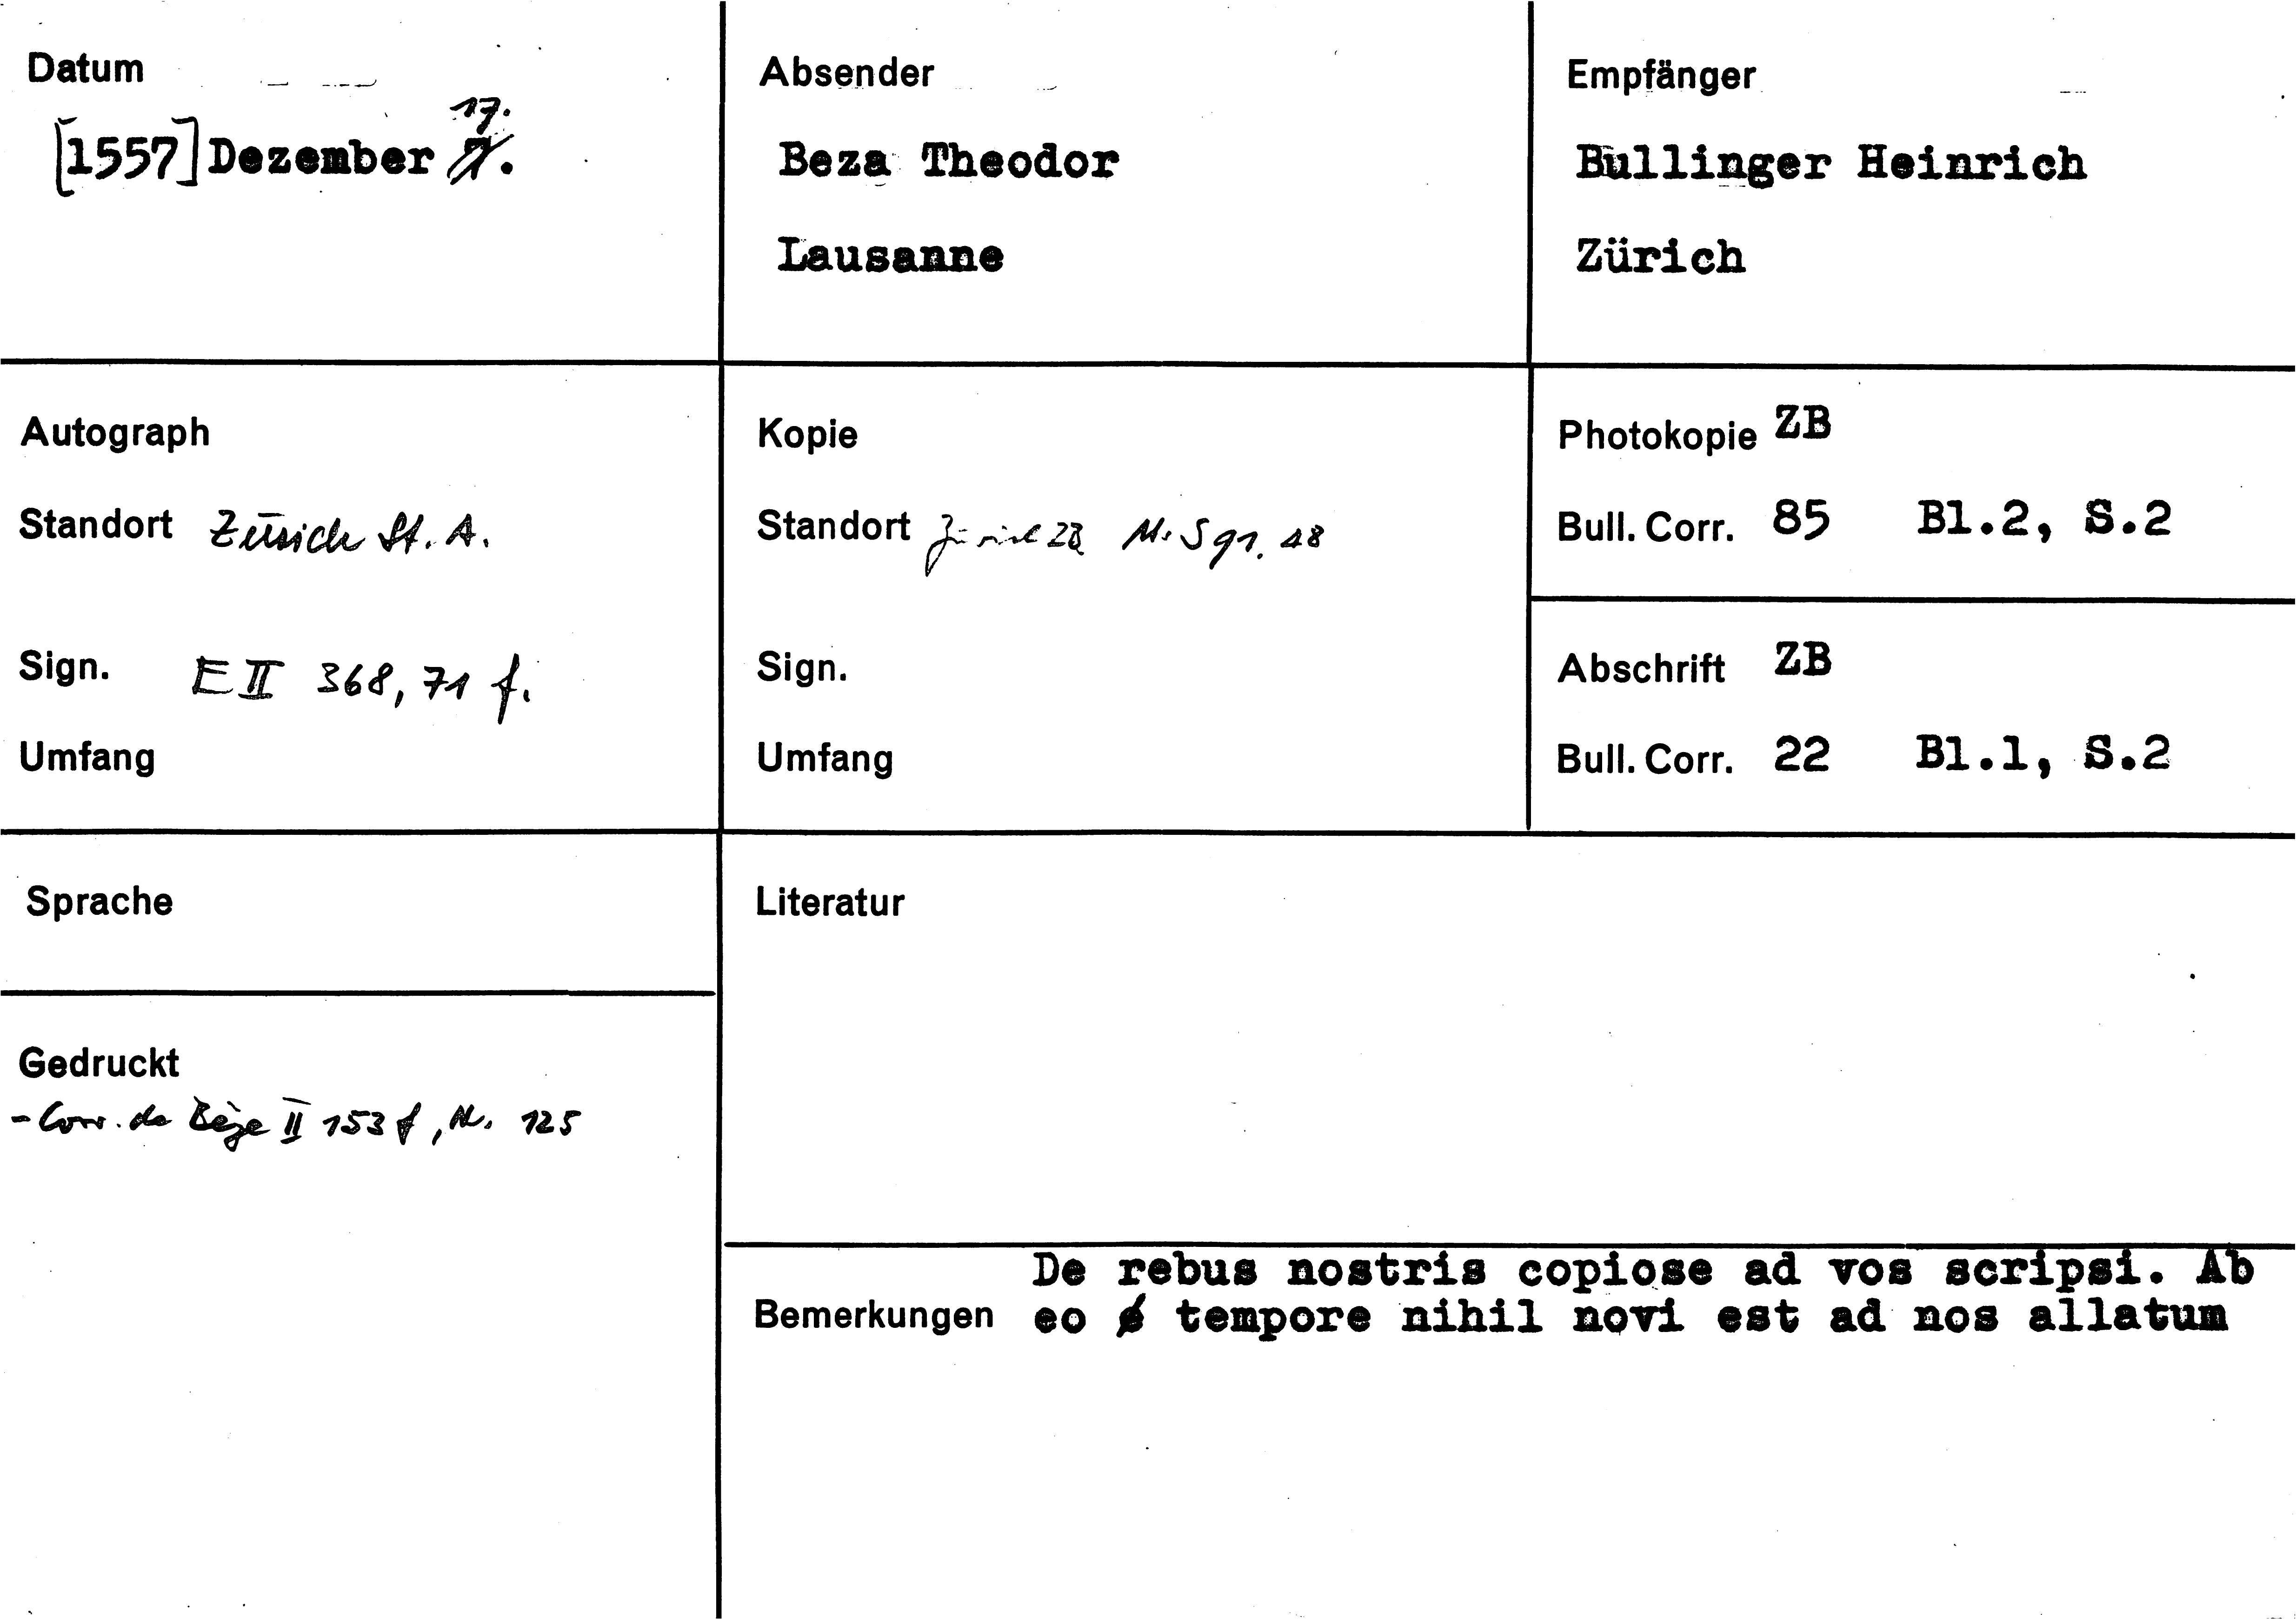 Datum
17.
[1557] Dezember 7.
Absender
Beza Theodor
Lausanne
Empfänger
Bullinger Heinrich
Zürich
Autograph
Standort Zürich St. A.
Sign. E II 368, 71 f.
Umfang
Kopie
Standort Zürich ZB Ms S 91. 18
Sign.
Umfang
Photokopie ZB
Bull. Corr. 85 Bl.2, S.2
Abschrift ZB
Bull. Corr. 22 Bl.1, S.2
Sprache
Gedruckt
- Corr. de Bèze II 153 f, Nr. 125
Literatur
Bemerkungen
De rebus nostris copiose ad vos scripsi. Ab
eo tempore nihil novi est ad nos allatum